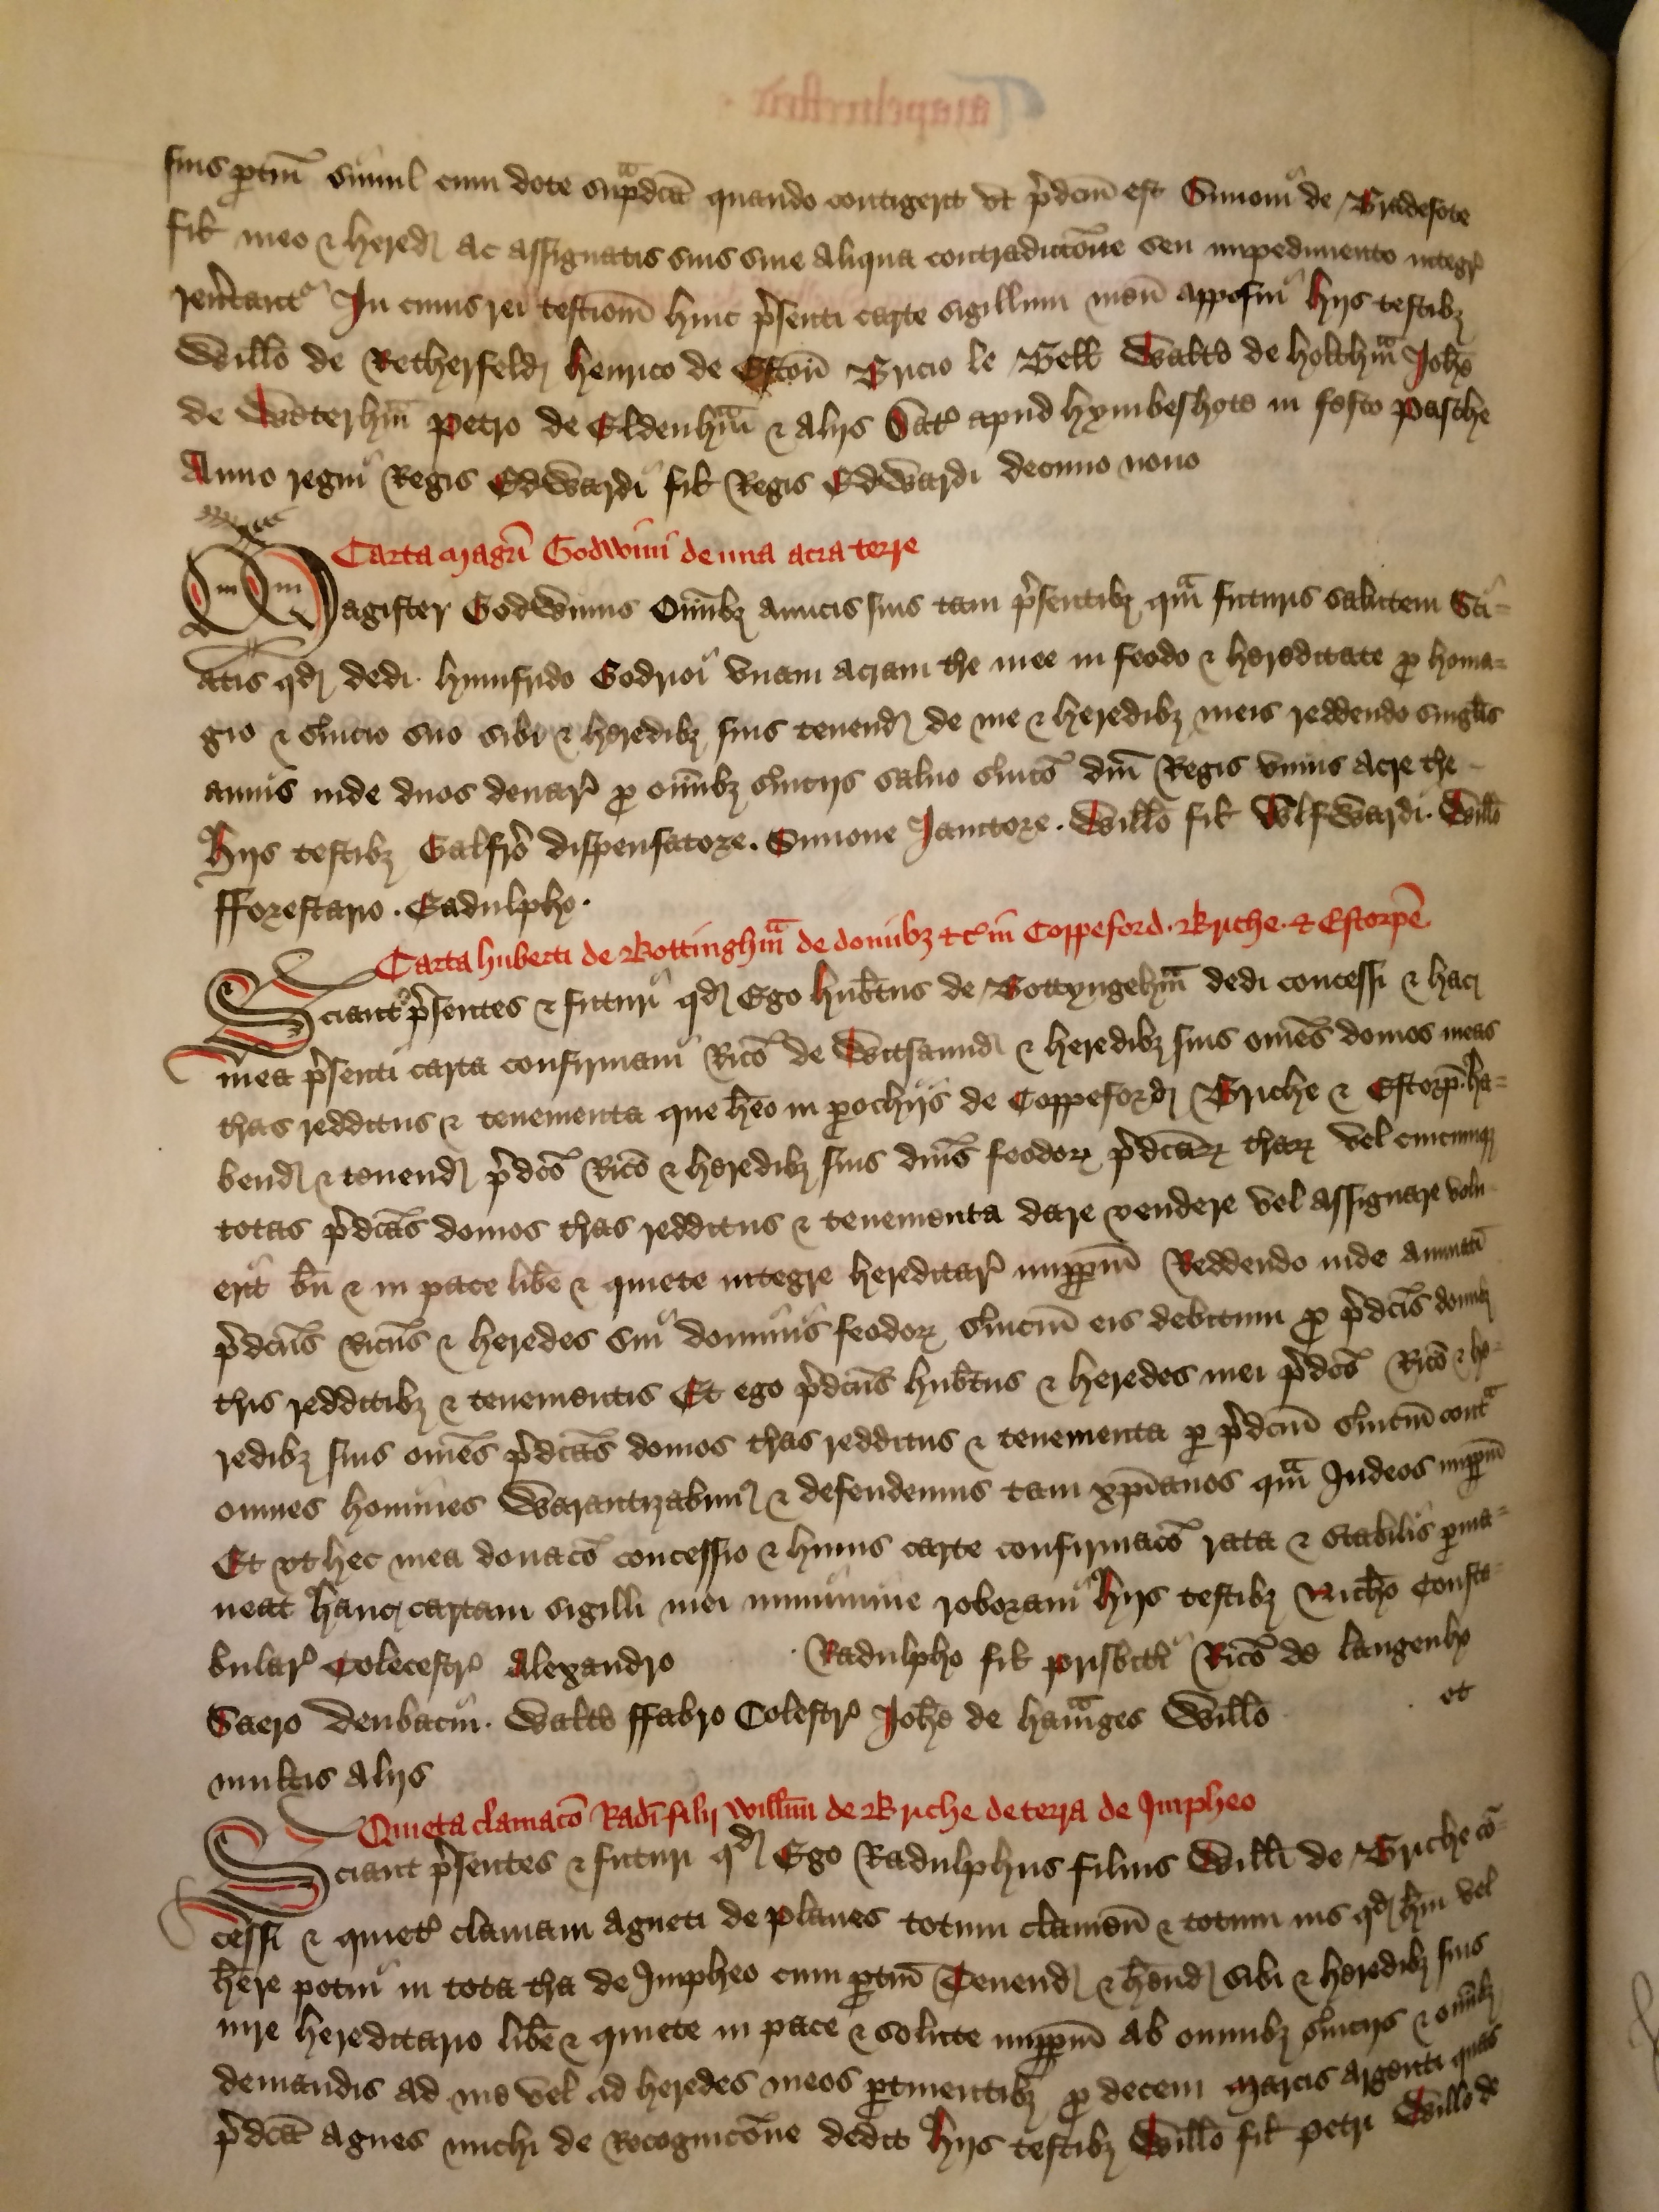 suis ptin̄ simul cum dote sup̄dcā quando contigerit vt p̄dcm̄ est Simoni de Bradefote
fil̄ meo & hered̄ ac assignatis suis sine aliqua contradiccōne seu impedimento integr̄
reu̓tant̄ In cuius rei testiom̄ huic p̄senti carte sigillum meū apposui hijs testibȝ
Willo̅ de Retherfeld̄ henrico de Estoū Bricio le Bell Walto̅ de holchm̄ Joh̅e
de Waterhm̄ Petro de Eldenhm̄ & alijs Dat̄ apud hymbeshoto in festo Pasche
Anno regni Regis Edwardi fil̄ Regis Edwardi decimo nono
Carta magr̄i Godwini de una acra terre
Magister Godwinus Om̅ibȝ amicis suis tam p̄sentibȝ qm̄ futuris salutem Sci=
atis qd̄ dedi humfrido Godrici vnam acram t̄re mee in feodo & hereditate p homa=
gio & s̄uicio suo sibi & heredibȝ suis tenend̄ de me & heredibȝ meis reddendo singlis̄
annis inde duos denar̄ p om̅ibȝ s̄uicijs saluo s̄uico̅ dn̅i Regis vnius acre t̄re
Hijs testibȝ Galfr̄o dispensatore. Simone Janitore. Willo̅ fil̄ Wlfwardi. Willo̅
fforestario. Eadulpho.
Carta huberti de Bottinghm̄ de domibȝ & c̄ in Coppeford. Briche. & Estorpe̅
Sciant p̄sentes & futuri qd̄ Ego hub̄tus de Bottyngehm̄ dedi concessi & hac
mea p̄senti carta confirmaui Rico̅ de Witsaund̄ & heredibȝ suis om̅es domos meas
t̄ras redditus & tenementa que he̅o in p̱ochijs de Coppeford̄ Briche & Estorp̄ ha=
bend̄ & tenend̄ p̄dco̅ Rico̅ & heredibȝ suis dn̅is feodoꝝ p̄dcaꝝ t̄raꝝ vel cuicumqȝ
totas p̄dcas̄ domos t̄ras redditus & tenementa dare vendere vel assignare volu
erit bn̅ & in pace libe̅ & quiete integre hereditar̄ imp̱p̱m̄ Reddendo inde annuatī
p̄dcus̄ Ricus̄ & heredes sui dominis feodoꝝ s̄uiciū eis debitum p p̄dcis̄ domibȝ
t̄ris redditibȝ & tenementis Et ego p̄dcus̄ hub̄tus & heredes mei p̄dco̅ Rico̅ & he=
redibȝ suis om̅es p̄dcas̄ domos t̄ras redditus & tenementa p̱ p̄dcm̄ s̄uiciū cont̄
omnes homines Warantizabim̄ & defendemus tam xp̅ianos qm̄ Judeos imp̱p̱m̄
Et vt hec mea donaco̅ concessio & huius carte confirmaco̅ rata & stabilis p̱ma=
neat hanc cartam sigilli mei munimine roboraui hijs testibȝ Nich̅o Consta=
bular̄ Colecestr̄ Alexandro Radulpho fil̄ prisbit̄i Rico̅ de langenho
Saero Denbacin. Walto̅ ffabro Colestr̄ Joh̅e de ham̄ges Willo̅ et
multis alijs
Quieta clamaco̅ Radi̅ filij Willmī de Briche de terra de Impheo
Sciant p̄sentes & futuri qd̄ Ego Radulphus filius Willi̅ de Briche co̅=
cessi & quiet̄ clamaui Agneti de planes totum clameū & totum ius qd̄ hui̅ vel
he̅re potui in tota t̄ra de Impheo cum p̱tin̄ Tenend̄ & he̅nd̄ sibi & heredibȝ suis
iure hereditario libe̅ & quiete in pace & solute imp̱p̱m̄ ab omnibȝ s̄uicijs & om̅ibȝ
demandis ad me vel ad heredes meos p̱tinentibȝ p decem marcis argenti quas
p̄dcā Agnes michi de Recognico̅ne dedit Hijs testibȝ Willo̅ fil̄ Petri Willo̅ de